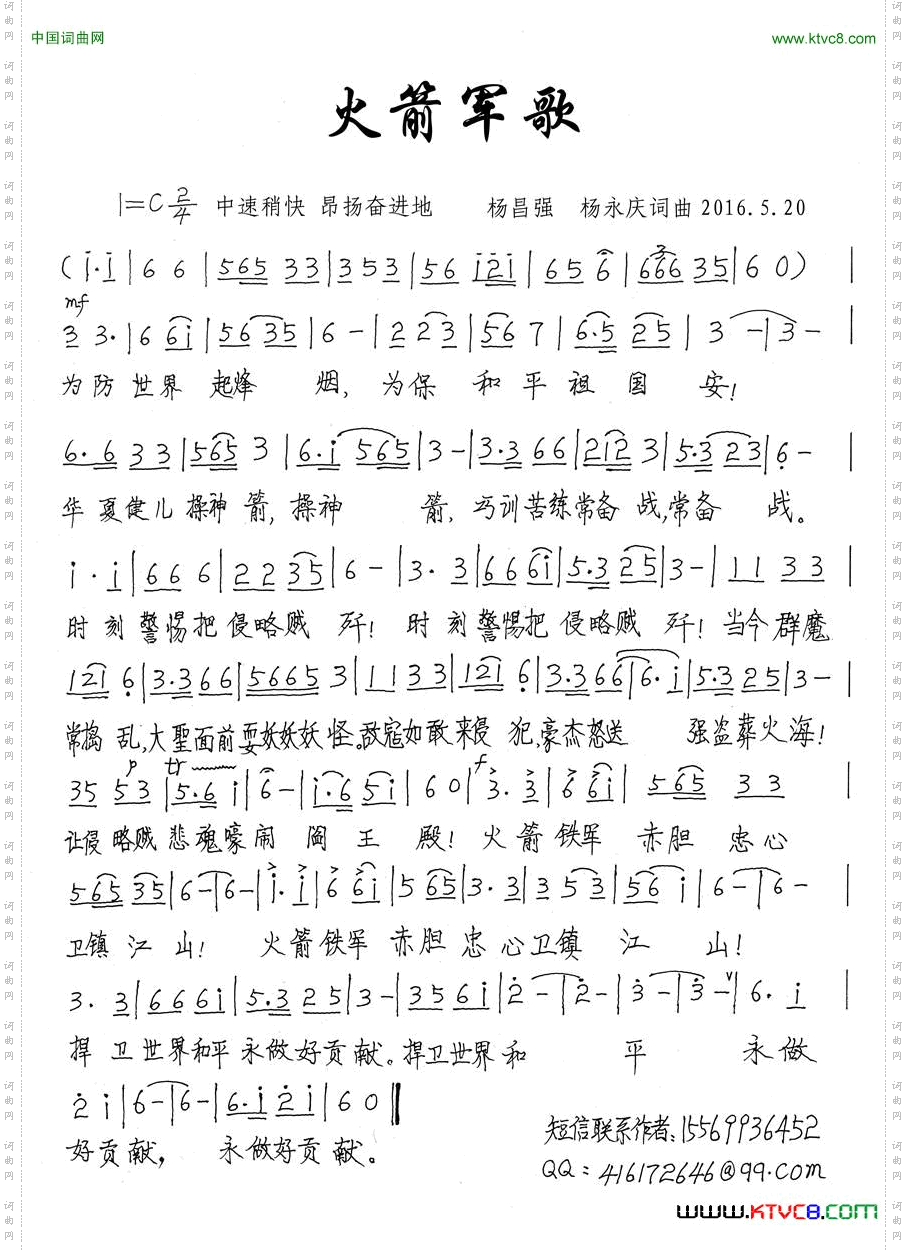 中国词曲网 www.ktvc8.com
火箭军歌
1=C 2/4 中速稍快 昂扬奋进地 杨昌强 杨永庆词曲 2016.5.20
(i·i|6 6|565 33|353|56 i2i|65 6|666 35|60)|
mf
3 3·|6 6i|56 35|6-|2 23|56 7|6·5 25|3-|3-|
为防世界 起烽 烟, 为保 和平祖国 安!
6·6 33|565 3|6·i 565|3-|3·3 66|212 3|5·3 23|6-|
华夏健儿操神箭,操神 箭,巧训苦练常备战,常备 战。
i·i|66 6|22 35|6-|3·3|66 6i|5·3 25|3-|11 33|
时刻警惕把侵略贼 歼! 时刻警惕把侵略贼 歼! 当今群魔
121 6|3·3 66|5665 3|11 33|121 6|3·3 66|6·i|5·3 25|3-|
常捣乱,大聖面前耍妖妖妖怪。敌寇如敢来侵犯,豪杰怒送 强盗葬火海!
p tr f
35 53|5·6 i|6-|i·6 5i|60|3·3|6 6i|565 33|
让侵略贼悲魂嚎闹阎王殿!火箭铁军赤胆忠心
565 35|6-|6-|i·i|6 6i|5 65|3·3|3 53|56 i|6-|6-
卫镇江山! 火箭铁军赤胆忠心卫镇江 山!
3·3|66 6i|5·3 25|3-|35 6i|2-|2-|3-|3-|6·i|
捍卫世界和平永做好贡献。捍卫世界和 平 永做
2 i|6-|6-|6·i 2i|60‖
好贡献, 永做好贡献。
短信联系作者:15569936452
QQ:416172646@99.com
www.KTVC8.com
词曲网